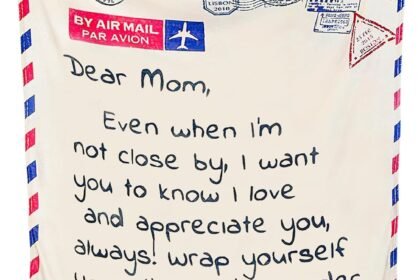 LISBON
2018
BY AIR MAIL
PAR AVION
Dear Mom,
Even when I'm
not close by, I want
you to know I love
and appreciate you,
always! wrap yourself